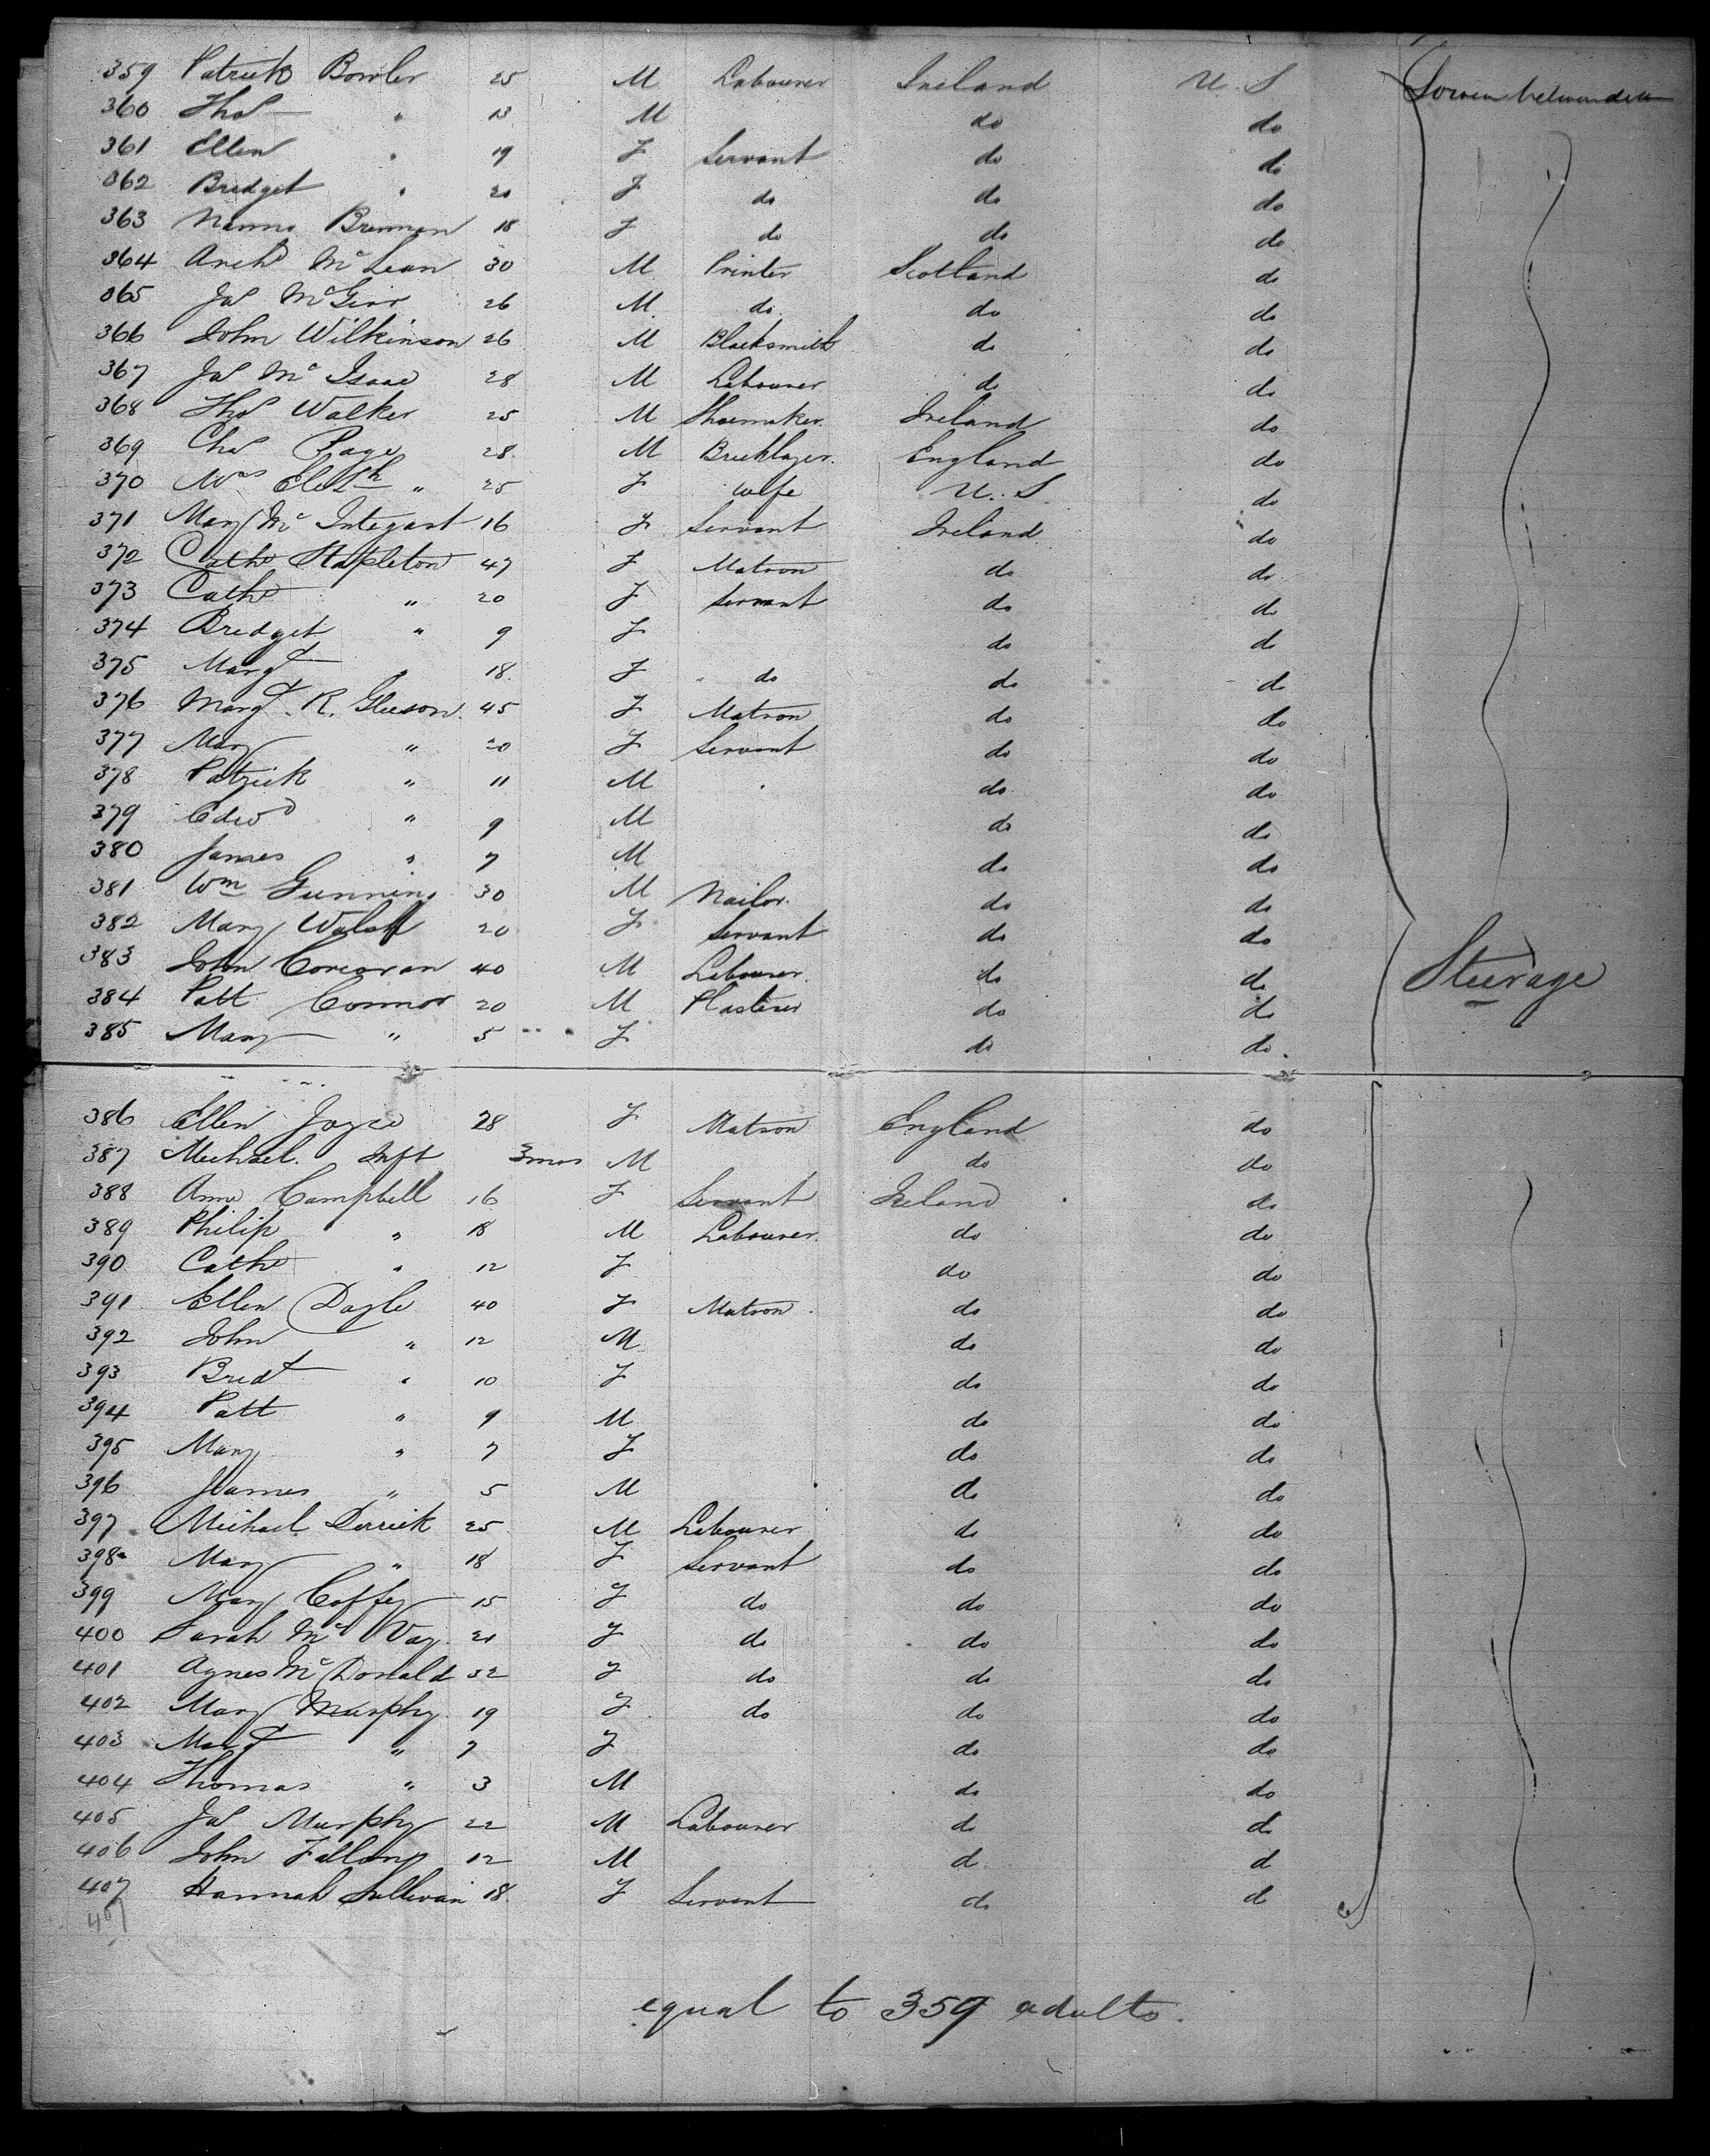 359 Patrick Bowler 25 M Labourer Ireland U. S Lower between decks
360 Thos " 13 M do do
361 Ellen " 19 F Servant do do
362 Bridget " 20 F do do do
363 Brennan 18 F do do do
364 Archd McLean 30 M Printer Scotland do
365 Jas 26 M do do do
366 John Wilkinson 26 M Blacksmith do do
367 Jas Mc Isaac 28 M Labourer do do
368 Thos Walker 25 M Shoemaker Ireland do
369 Chs Page 28 M Bricklayer England do
370 Mrs Elizth " 25 F wife U. S. do
371 Mary 16 F Servant Ireland do
372 Cathe Stapleton 47 F Matron do do
373 Cathe " 20 F Servant do do
374 Bridget " 9 F do do
375 Margt " 18 F do do do
376 Margt. R. Gleeson 45 F Matron do do
377 Mary " 20 F Servant do do
378 Patrick " 11 M do do
379 Edwd " 9 M do do
380 James " 7 M do do
381 Wm Gunning 30 M Nailor do do
382 Mary Walsh 20 F Servant do do
383 John Corcoran 40 M Labourer do do
Steerage
384 Patt Connor 20 M Plasterer do do
385 Mary " 5 F do do
386 Ellen Joyce 28 F Matron England do
387 Michael Inft 3mos M do do
388 Ann Campbell 16 F Servant Ireland do
389 Philip " 18 M Labourer do do
390 Cathe " 12 F do do
391 Ellen Doyle 40 F Matron do do
392 John " 12 M do do
393 Bredt " 10 F do do
394 Patt " 9 M do do
395 Mary " 7 F do do
396 James " 5 M do do
397 Michael Derrick 25 M Labourer do do
398 Mary " 18 F Servant do do
399 Mary Coffey 15 F do do do
400 Sarah Mc Vay F do do do
401 Agnes McDonald 32 F do do do
402 Mary Murphy 19 F do do do
403 Margt " 7 F do do
404 Thomas " 3 M do do
405 Jas Murphy 22 M Labourer do do
406 John Fallon 12 M do do
407 Hannah Sullivan 18 F Servant do do
407
equal to 359 adults.